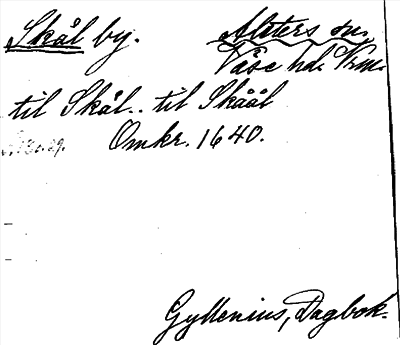 Skål by. Alsters sn.
Väse hd. Vrml.
til Skål.. til Skääl
Omkr. 1640.
Gyllenius, Dagbok.